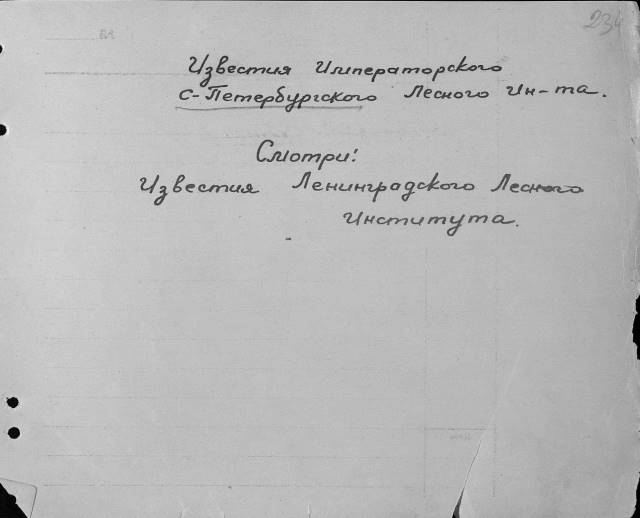 234
Известия Императорского
С-Петербургского Лесного Ин-та.
Смотри:
Известия Ленинградского Лесного
Института.